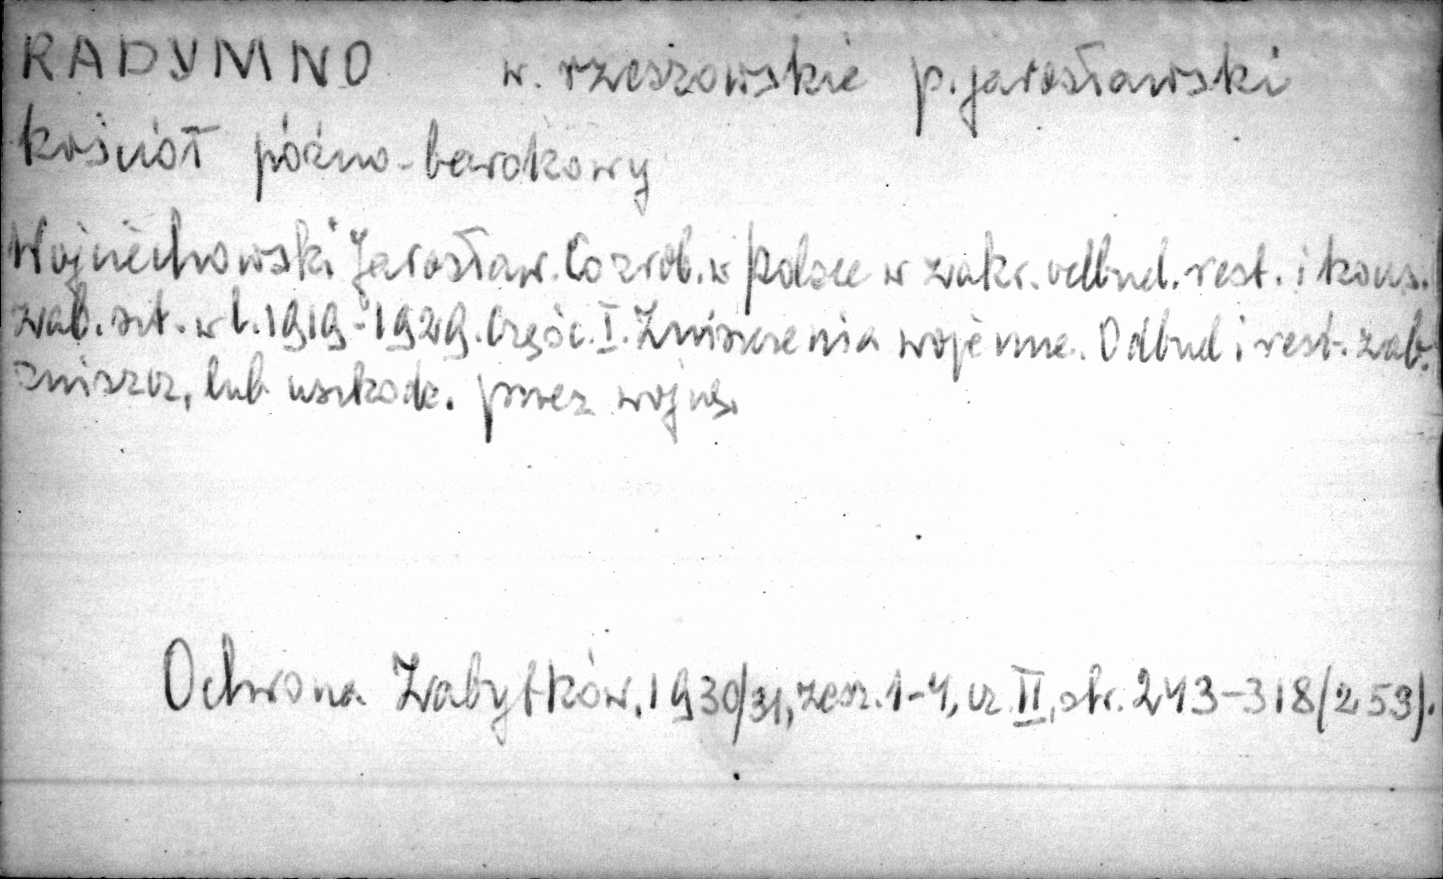 RADYMNO w. rzeszowskie p. jarosławski
kościół późno-barokowy
Wojciechowski Jarosław. Co zrob. w Polsce w zakr. odbud. rest. i kons.
zab. szt. w l. 1919-1929. Część. I. Zniszczenia wojenne. Odbud i rest. zab.
zniszcz, lub uszkodz. przez wojnę.
Ochrona Zabytków, 1930/31, zesz. 1-4, cz. II, str. 243-318/253).